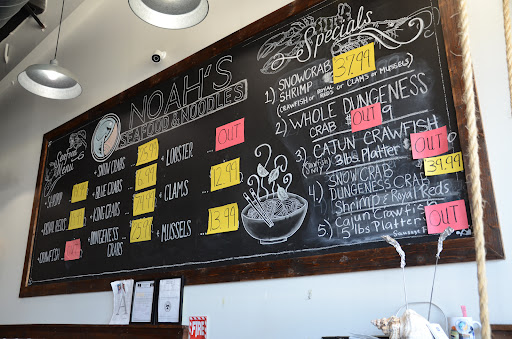 NOAH'S
SEAFOOD & NOODLES
Seafood
SHRIMP
ROYAL REDS
CRAWFISH
+ SNOW CRABS
+ BLUE CRABS
+ KING CRABS
+ DUNGENESS
CRABS
+ LOBSTER
OUT
+ CLAMS
12.99
+ MUSSELS
13.99
Specials
1) SNOWCRAB 37.99
SHRIMP
(CRAWFISH or ROYAL REDS or CLAMS or MUSSELS)
2) WHOLE DUNGENESS
CRAB OUT
3) CAJUN CRAWFISH
3 lbs Platter OUT
4) SNOW CRAB 39.99
DUNGENESS CRAB
Shrimp & Royal Reds
5) Cajun Crawfish
5 lbs Platter OUT
FIRE